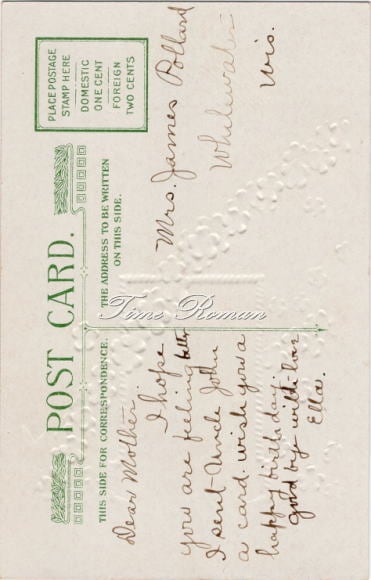 POST CARD.
THIS SIDE FOR CORRESPONDENCE.
THE ADDRESS TO BE WRITTEN
ON THIS SIDE.
PLACE POSTAGE
STAMP HERE
DOMESTIC
ONE CENT
FOREIGN
TWO CENTS
Dear Mother
I hope
you are feeling better
I sent Uncle John
a card. wish you a
happy birthday.
good by with love
Ella.
Mrs. James Pollard
Whitewater
Wis.
Time Roman